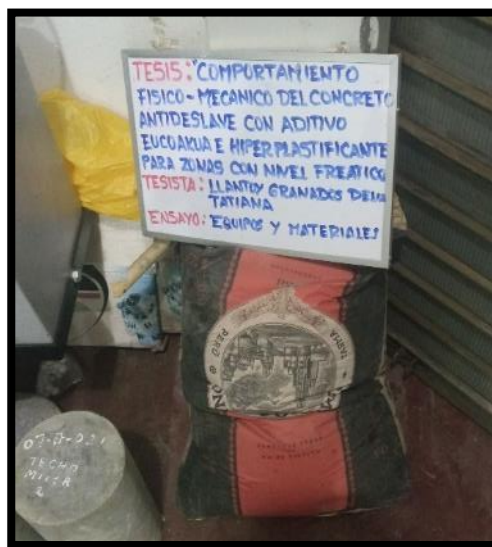 TESIS: "COMPORTAMIENTO
FISICO-MECANICO DEL CONCRETO
ANTIDESLAVE CON ADITIVO
EUCOAKUA E HIPERPLASTIFICANTE
PARA ZONAS CON NIVEL FREATICO
TESISTA: LLANTOY GRANADOS
TATIANA
ENSAYO: EQUIPOS Y MATERIALES
TARMA PERU
TECHO
2